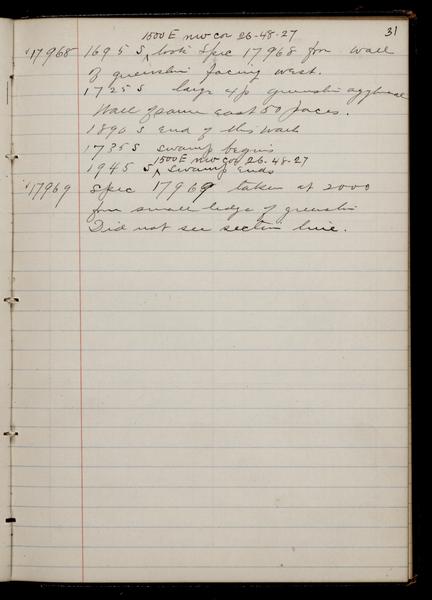 31
1500 E nw cor 26-48-27
17968 1695 S, took Spec 17968 from wall
of greenstn facing west.
1725 S large exp greenstn agglomerate
Wall of same east 50 paces.
1890 S end of this wall
1735 S swamp begins
1500 E nw cor 26-48-27
1945 S, swamp ends
17969 Spec 17969 taken at 2000
from small ledge of greenstn
Did not see section line.